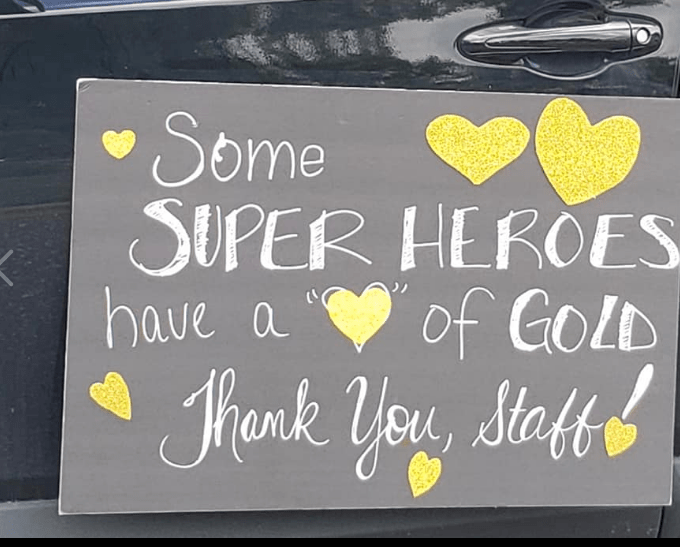 Some
SUPER HEROES
have a "💛" of GOLD
Thank You, Staff!